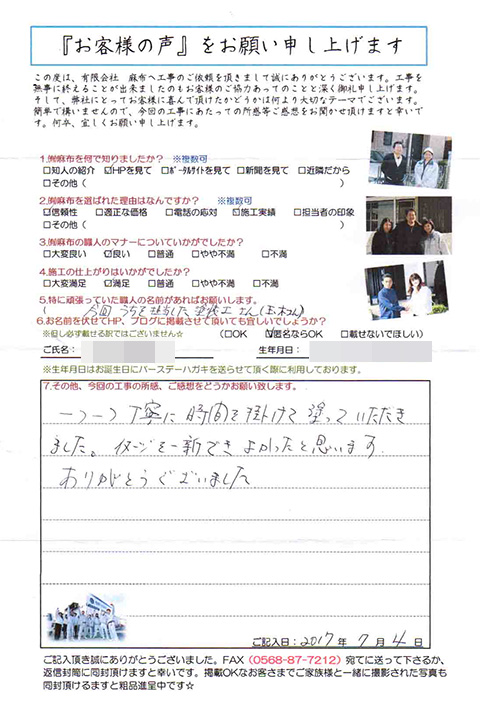 『お客様の声』をお願い申し上げます
この度は、有限会社　麻布へ工事のご依頼を頂きまして誠にありがとうございます。工事を
無事に終えることが出来ましたのもお客様のご協力あってのことと深く御礼申し上げます。
そして、弊社にとってお客様に喜んで頂けたかどうかは何より大切なテーマでございます。
簡単で構いませんので、今回の工事にあたっての所感等ご感想をお聞かせ頂けますと幸いで
す。何卒、宜しくお願い申し上げます。
1.㈲麻布を何で知りましたか？　※複数可
□知人の紹介　☑HPを見て　□ﾎﾟｰﾀﾙｻｲﾄを見て　□新聞を見て　□近隣だから
□その他（　　　　　　　　　　　　　　　　　　　　　　　）
2.㈲麻布を選ばれた理由はなんですか？　※複数可
☑信頼性　□適正な価格　□電話の応対　☑施工実績　□担当者の印象
□その他（　　　　　　　　　　　　　　　　　　　　　　　）
3.㈲麻布の職人のマナーについていかがでしたか？
□大変良い　☑良い　□普通　□やや不満　□不満
4.施工の仕上がりはいかがでしたか？
□大変満足　☑満足　□普通　□やや不満　□不満
5.特に頑張っていた職人の名前があればお願いします。
（　今回 うちを担当した 塗装工 さん（玉木さん）
6.お名前を伏せてHP、ブログに掲載させて頂いても宜しいでしょうか？
※但し必ず載せる訳ではございません☆　（□OK　☑匿名ならOK　□載せないでほしい）
ご氏名：　　　　　　　　　　生年月日：
※生年月日はお誕生日にバースデーハガキを送らせて頂く際に利用しております。
7.その他、今回の工事の所感、ご感想をどうかお願い致します。
一つ一つ丁寧に時間を掛けて塗っていただき
ました。イメージを一新できよかったと思います。
ありがとうございました
ご記入日：2017年 7月 4日
ご記入頂き誠にありがとうございました。FAX（0568-87-7212）宛てに送って下さるか、
返信封筒に同封頂けますと幸いです。掲載OKなお客さまでご家族様と一緒に撮影された写真も
同封頂けるますと粗品進呈中です☆